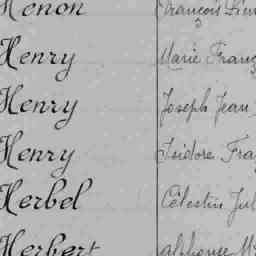 Henon François
Henry Marie
Henry Joseph Jean
Henry Isidore
Herbel Célestin
Herbert Alphonse